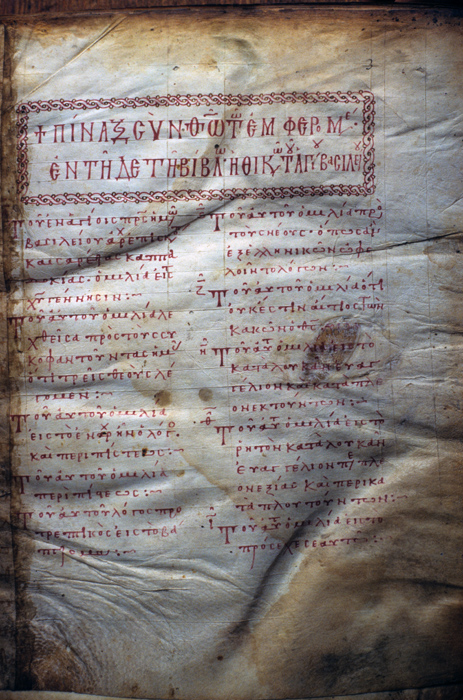 + ΠΙΝΑΞ ΣΥΝ ΘΩ ΤΩΝ ΕΜΦΕΡΟΜΕ
ΕΝ ΤΗΔΕ ΤΗ ΒΙΒΛ ΗΘΙΚ ΤΑΓΙΟΥ ΒΑΣΙΛΕΙΟΥ
τοῦ ἐν ἁγίοις πρς ἡμῶ
βασιλείου ἀρχεπισκ
καισαρείας καππα
κίας ὁμιλία εἰς τ
χυ γέννησιν
τοῦ αὐτοῦ ὁμιλία λε
χθεῖσα πρὸς τοὺς συ
κοφαντοῦντας ἡμ
ὅτι τρεῖς θεοὺς λέ
γομεν
τοῦ αὐτοῦ ὁμιλία
εἰς τὸ ἐν ἀρχῆ ἦν ὁ λόγ
καὶ περὶ πίστεως
τοῦ αὐτοῦ ὁμιλία
περὶ πίστεως
τοῦ αὐτοῦ λόγος προ
τρεπτικὸς εἰς τὸ βά
πτισμα
τοῦ αὐτοῦ ὁμιλία πρὸ
τοὺς νέους ὅπως ἂν
ἐξ ἑλληνικῶν ὠφε
λοῖντο λόγων
ζ τοῦ αὐτοῦ ὁμιλία ὅτι
οὐκ ἔστιν αἴτιος τῶν
κακῶν ὁ θς
η τοῦ αὐτοῦ ὁμιλία εἰς τὸ
κατὰ λουκᾶν εὐαγ
γέλιον καὶ κατὰ πλε
ονεκτούντων
θ τοῦ αὐτοῦ ὁμιλία εἰς τὸ
ῥητὸν κατὰ λουκᾶν
εὐαγγέλιον περὶ πλε
ονεξίας καὶ περὶ κα
τὰ πλουτούντων
ι τοῦ αὐτοῦ ὁμιλία εἰς τὸ
πρόσεχε σεαυτῶ